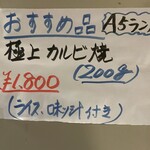 おすすめ品 A5ラン
極上カルビ焼
(200g)
¥1,800
(ライス、味噌汁付き)